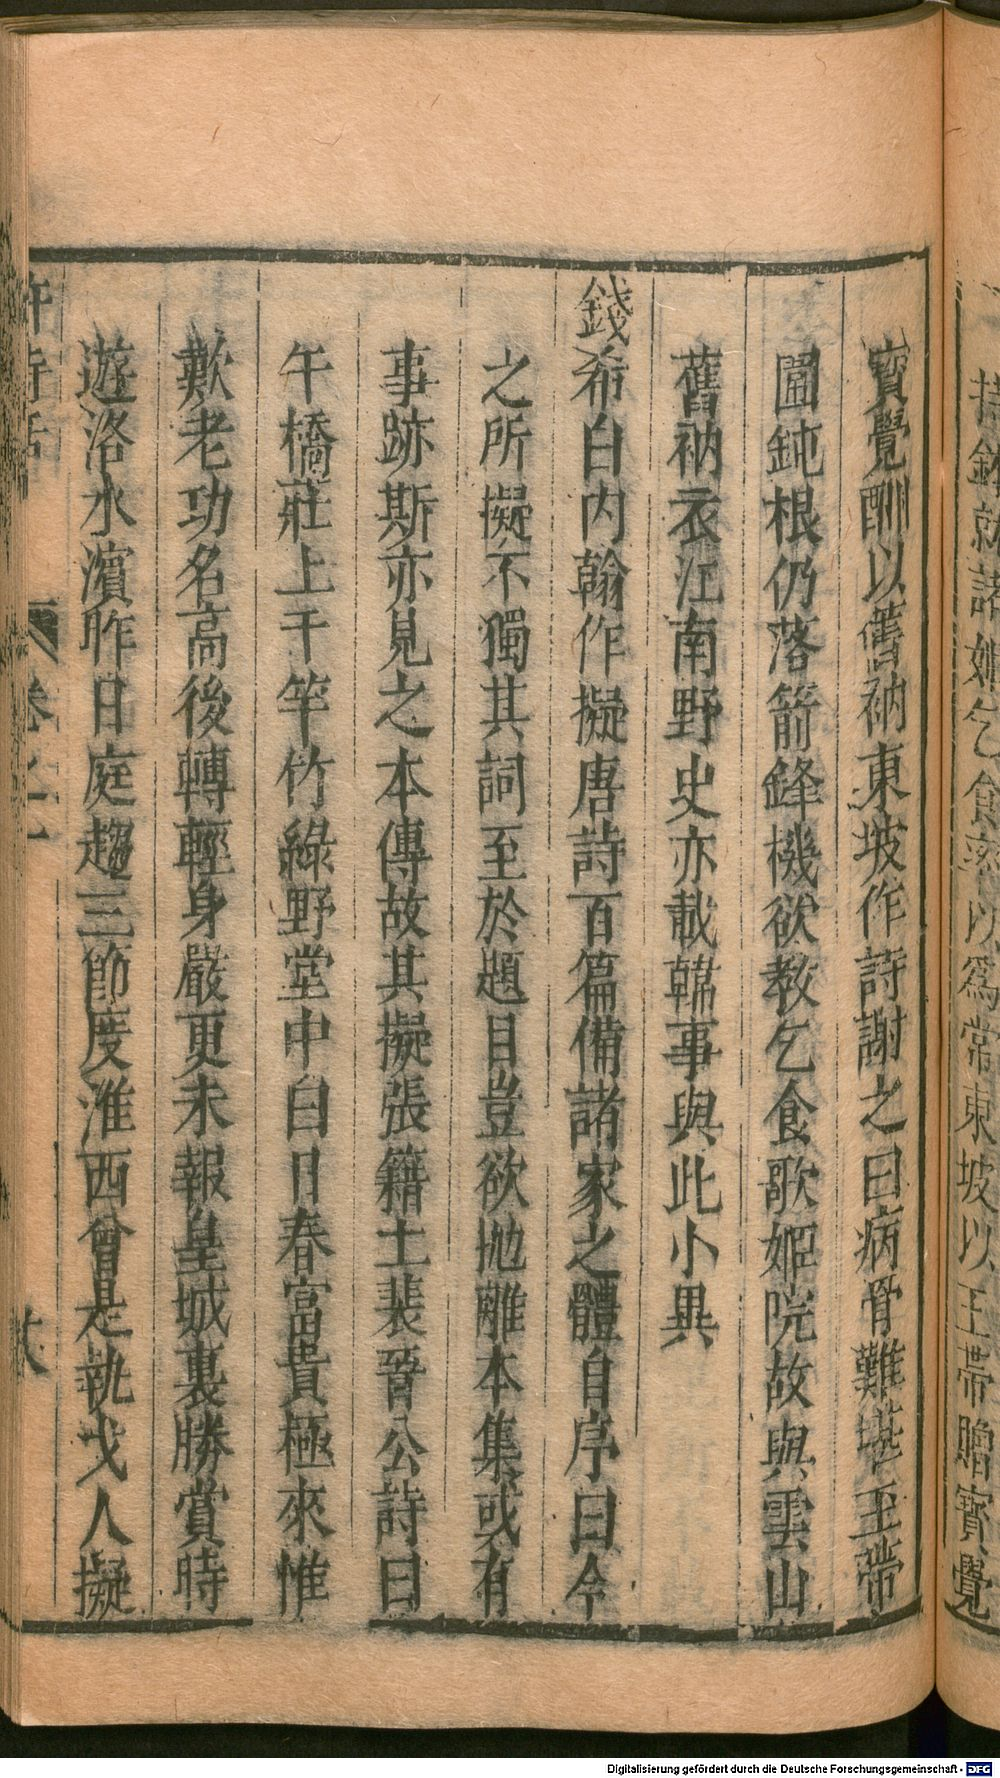 持鉢就諸姬乞食率以爲常東坡以玉帶贈寶覺
寶覺酬以舊衲東坡作詩謝之曰病骨難堪玉帶
圍鈍根仍落箭鋒機欲教乞食歌姬院故與雲山
舊衲衣江南野史亦載韓事與此小異
錢希白内翰作擬唐詩百篇備諸家之體自序曰今
之所擬不獨其詞至於題目豈欲拋離本集或有
事跡斯亦見之本傳故其擬張籍上裴晉公詩曰
午橋莊上千竿竹綠野堂中白日春富貴極來惟
歎老功名高後轉輕身嚴更未報皇城裏勝賞時
遊洛水濱昨日庭趨三節度淮西曾是執戈人擬
詩話 卷之
Digitalisierung gefördert durch die Deutsche Forschungsgemeinschaft - DFG